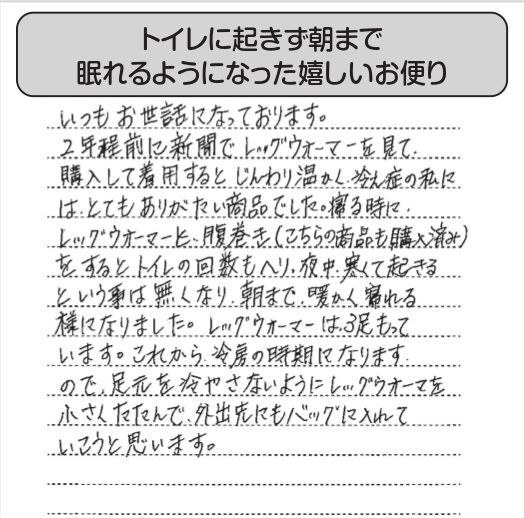 トイレに起きず朝まで
眠れるようになった嬉しいお便り
いつもお世話になっております。
2年程前に新聞でレッグウォーマーを見て、
購入して着用するとじんわり温かく、冷え症の私に
は、とてもありがたい商品でした。寝る時に、
レッグウォーマーと、腹巻き(こちらの商品も購入済み)
をするとトイレの回数もへり、夜中、寒くて起きる
という事は無くなり、朝まで、暖かく寝れる
様になりました。レッグウォーマーは、3足もって
います。これから、冷房の時期になります
ので、足元を冷やさないようにレッグウォーマを
小さくたたんで、外出先にもバッグに入れて
いこうと思います。